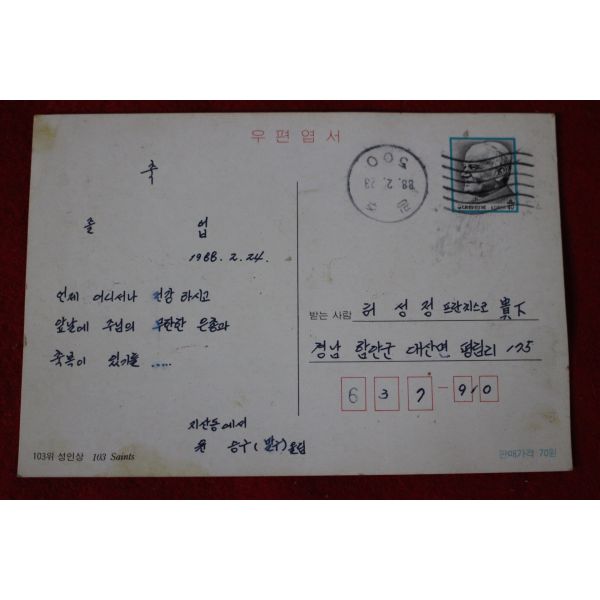 우편엽서
축
졸 업
1988. 2. 24.
언제 어디서나 건강 하시고
앞날에 주님의 무한한 은총과
축복이 있기를 .....
지산동에서
윤 승구 ( ) 드림
103위 성인상 103 Saints
500
88. 2. 23
받는 사람 허 성 정 프란치스코 貴下
경남 함안군 대산면 평림리 175
6 3 7 - 9 1 0
판매가격 70원